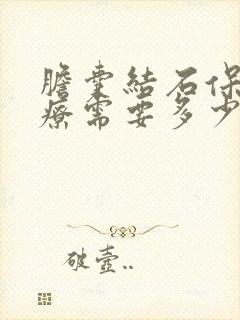 膽囊結石保
療需要多少
破壺..